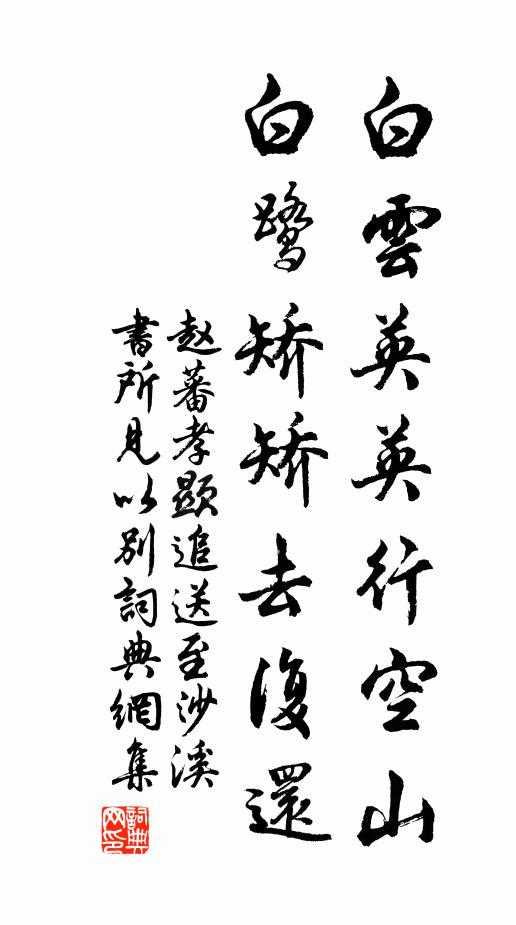 白雲英英行空山
白鹭矯矯去復還
赵蕃孝顯追送至沙溪
書所見以别詞典網集
詞典網印